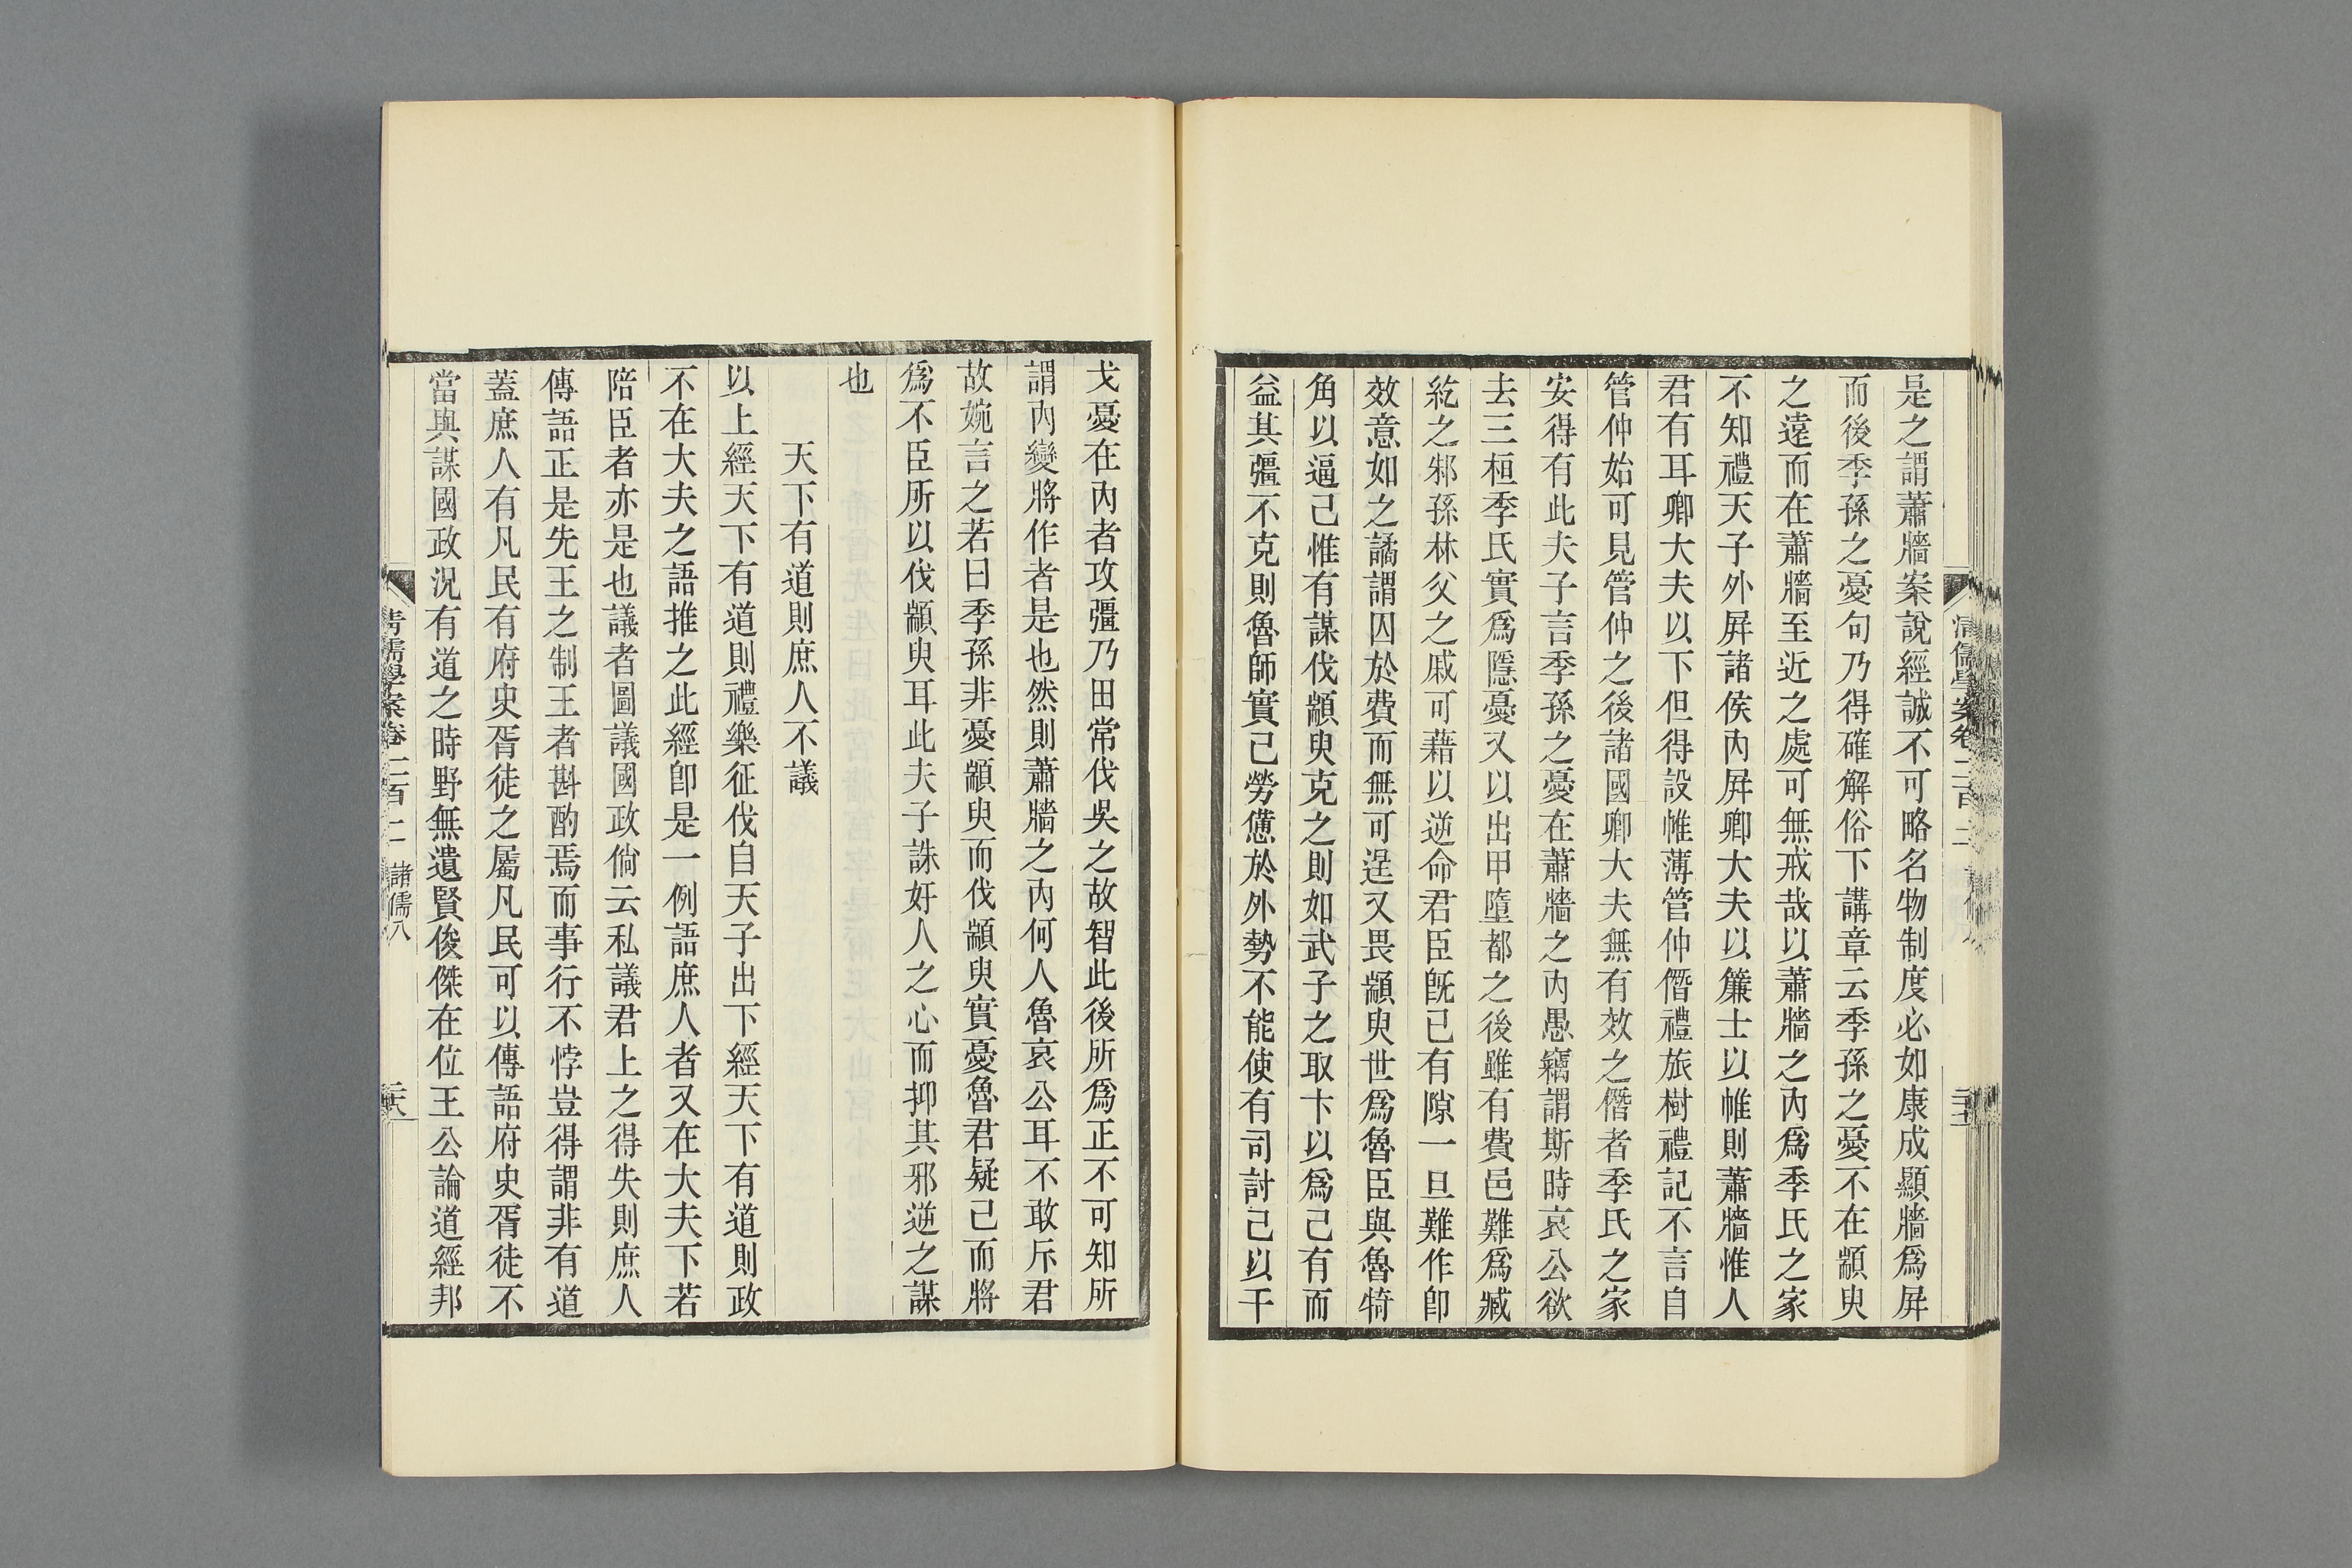 是之謂蕭牆案說經誠不可略名物制度必如康成顯牆爲屏
而後季孫之憂句乃得確解俗下講章云季孫之憂不在顓臾
之遠而在蕭牆至近之處可無戒哉以蕭牆之內爲季氏之家
不知禮天子外屏諸侯內屏卿大夫以簾士以帷則蕭牆惟人
君有耳卿大夫以下但得設帷薄管仲僭禮旅樹禮記不言自
管仲始可見管仲之後諸國卿大夫無有效之僭者季氏之家
安得有此夫子言季孫之憂在蕭牆之內愚竊謂斯時哀公欲
去三桓季氏實爲隱憂又以出甲墮都之後雖有費邑難爲臧
紇之邾孫林父之戚可藉以逆命君臣旣已有隙一旦難作卽
效意如之譎謂囚於費而無可逞又畏顓臾世爲魯臣與魯犄
角以逼己惟有謀伐顓臾克之則如武子之取卞以爲己有而
益其彊不克則魯師實已勞憊於外勢不能使有司討己以干
戈憂在內者攻彊乃田常伐吳之故智此後所爲正不可知所
謂內變將作者是也然則蕭牆之內何人魯哀公耳不敢斥君
故婉言之若曰季孫非憂顓臾而伐顓臾實憂魯君疑己而將
爲不臣所以伐顓臾耳此夫子誅奸人之心而抑其邪逆之謀
也
天下有道則庶人不議
以上經天下有道則禮樂征伐自天子出下經天下有道則政
不在大夫之語推之此經卽是一例語庶人者又在大夫下若
陪臣者亦是也議者圖議國政倘云私議君上之得失則庶人
傳語正是先王之制王者斟酌焉而事行不悖豈得謂非有道
蓋庶人有凡民有府史胥徒之屬凡民可以傳語府史胥徒不
當與謀國政況有道之時野無遺賢俊傑在位王公論道經邦
清儒學案卷二百二 諸儒八